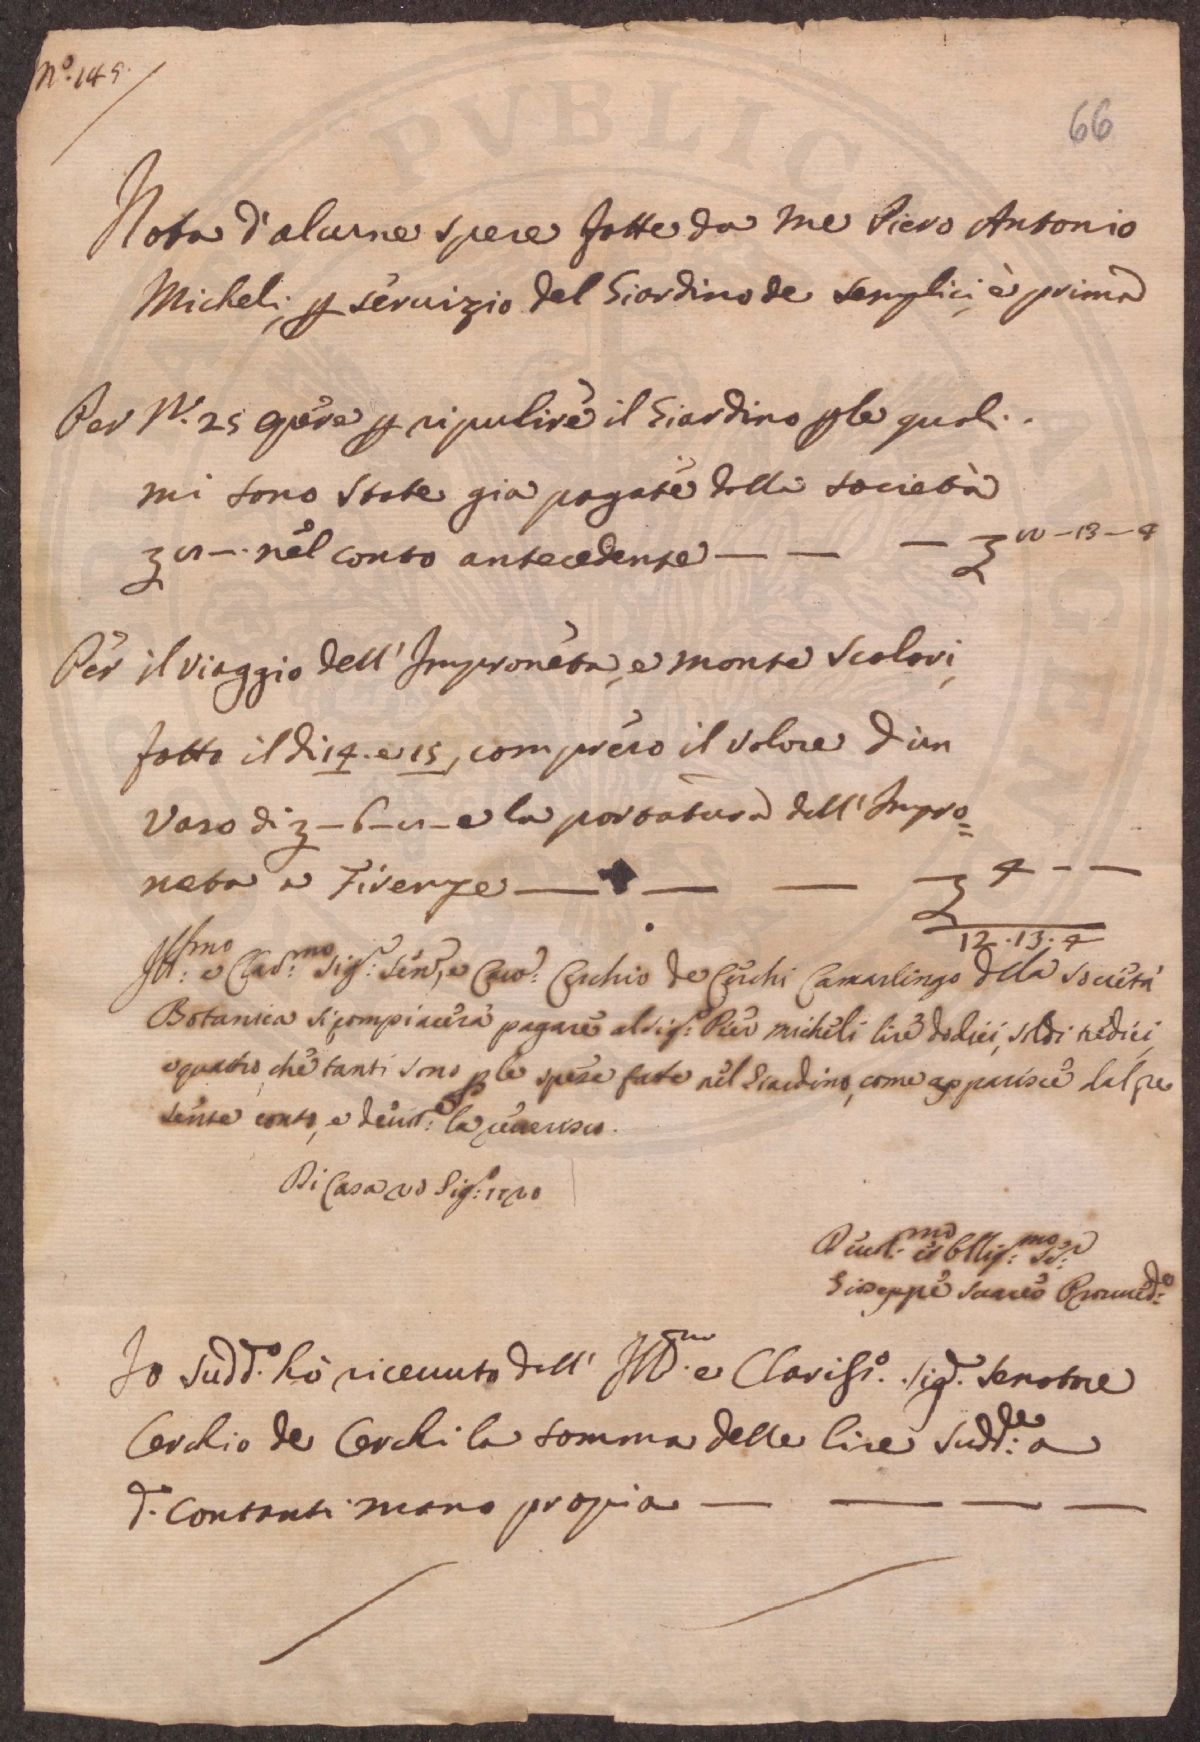 N.º 149.
66
Nota d'alcune spese fatte da me Piero Antonio
Micheli, p servizio del Giardino de Semplici, è prima
Per N. 25 opere p ripulire il Giardino p le quali
mi sono state gia pagate dalla società
nel conto antecedente — — —
Per il viaggio dell'Impruneta, e monte Scalari,
fatto il di 14. e 15, compreso il valore d'un
vaso di — 6 — e la portatura dall'Impro=
neta a Firenze — — — 4 — —
12.13.4
Ill:mo e Clar:mo Sig:r Sen:r, e Cerchio de Cerchi Camarlingo della Società
Botanica si compiacerà pagare al Sig:r Pier Micheli lire dodici, soldi tredici,
e quattro, che tanti sono p le spese fatte nel Giardino, come apparisce dal pre
sente conto, e devot: la riverisco.
Di Casa
Devot:mo et Obllig:mo Ser:
Giuseppe
Io Sudd.º hò ricevuto dall' Ill.mo e Clariss.º Sig.r Senatore
Cerchio de Cerchi la somma delle lire Sudd:de a
d. Contanti mano propia — — — —